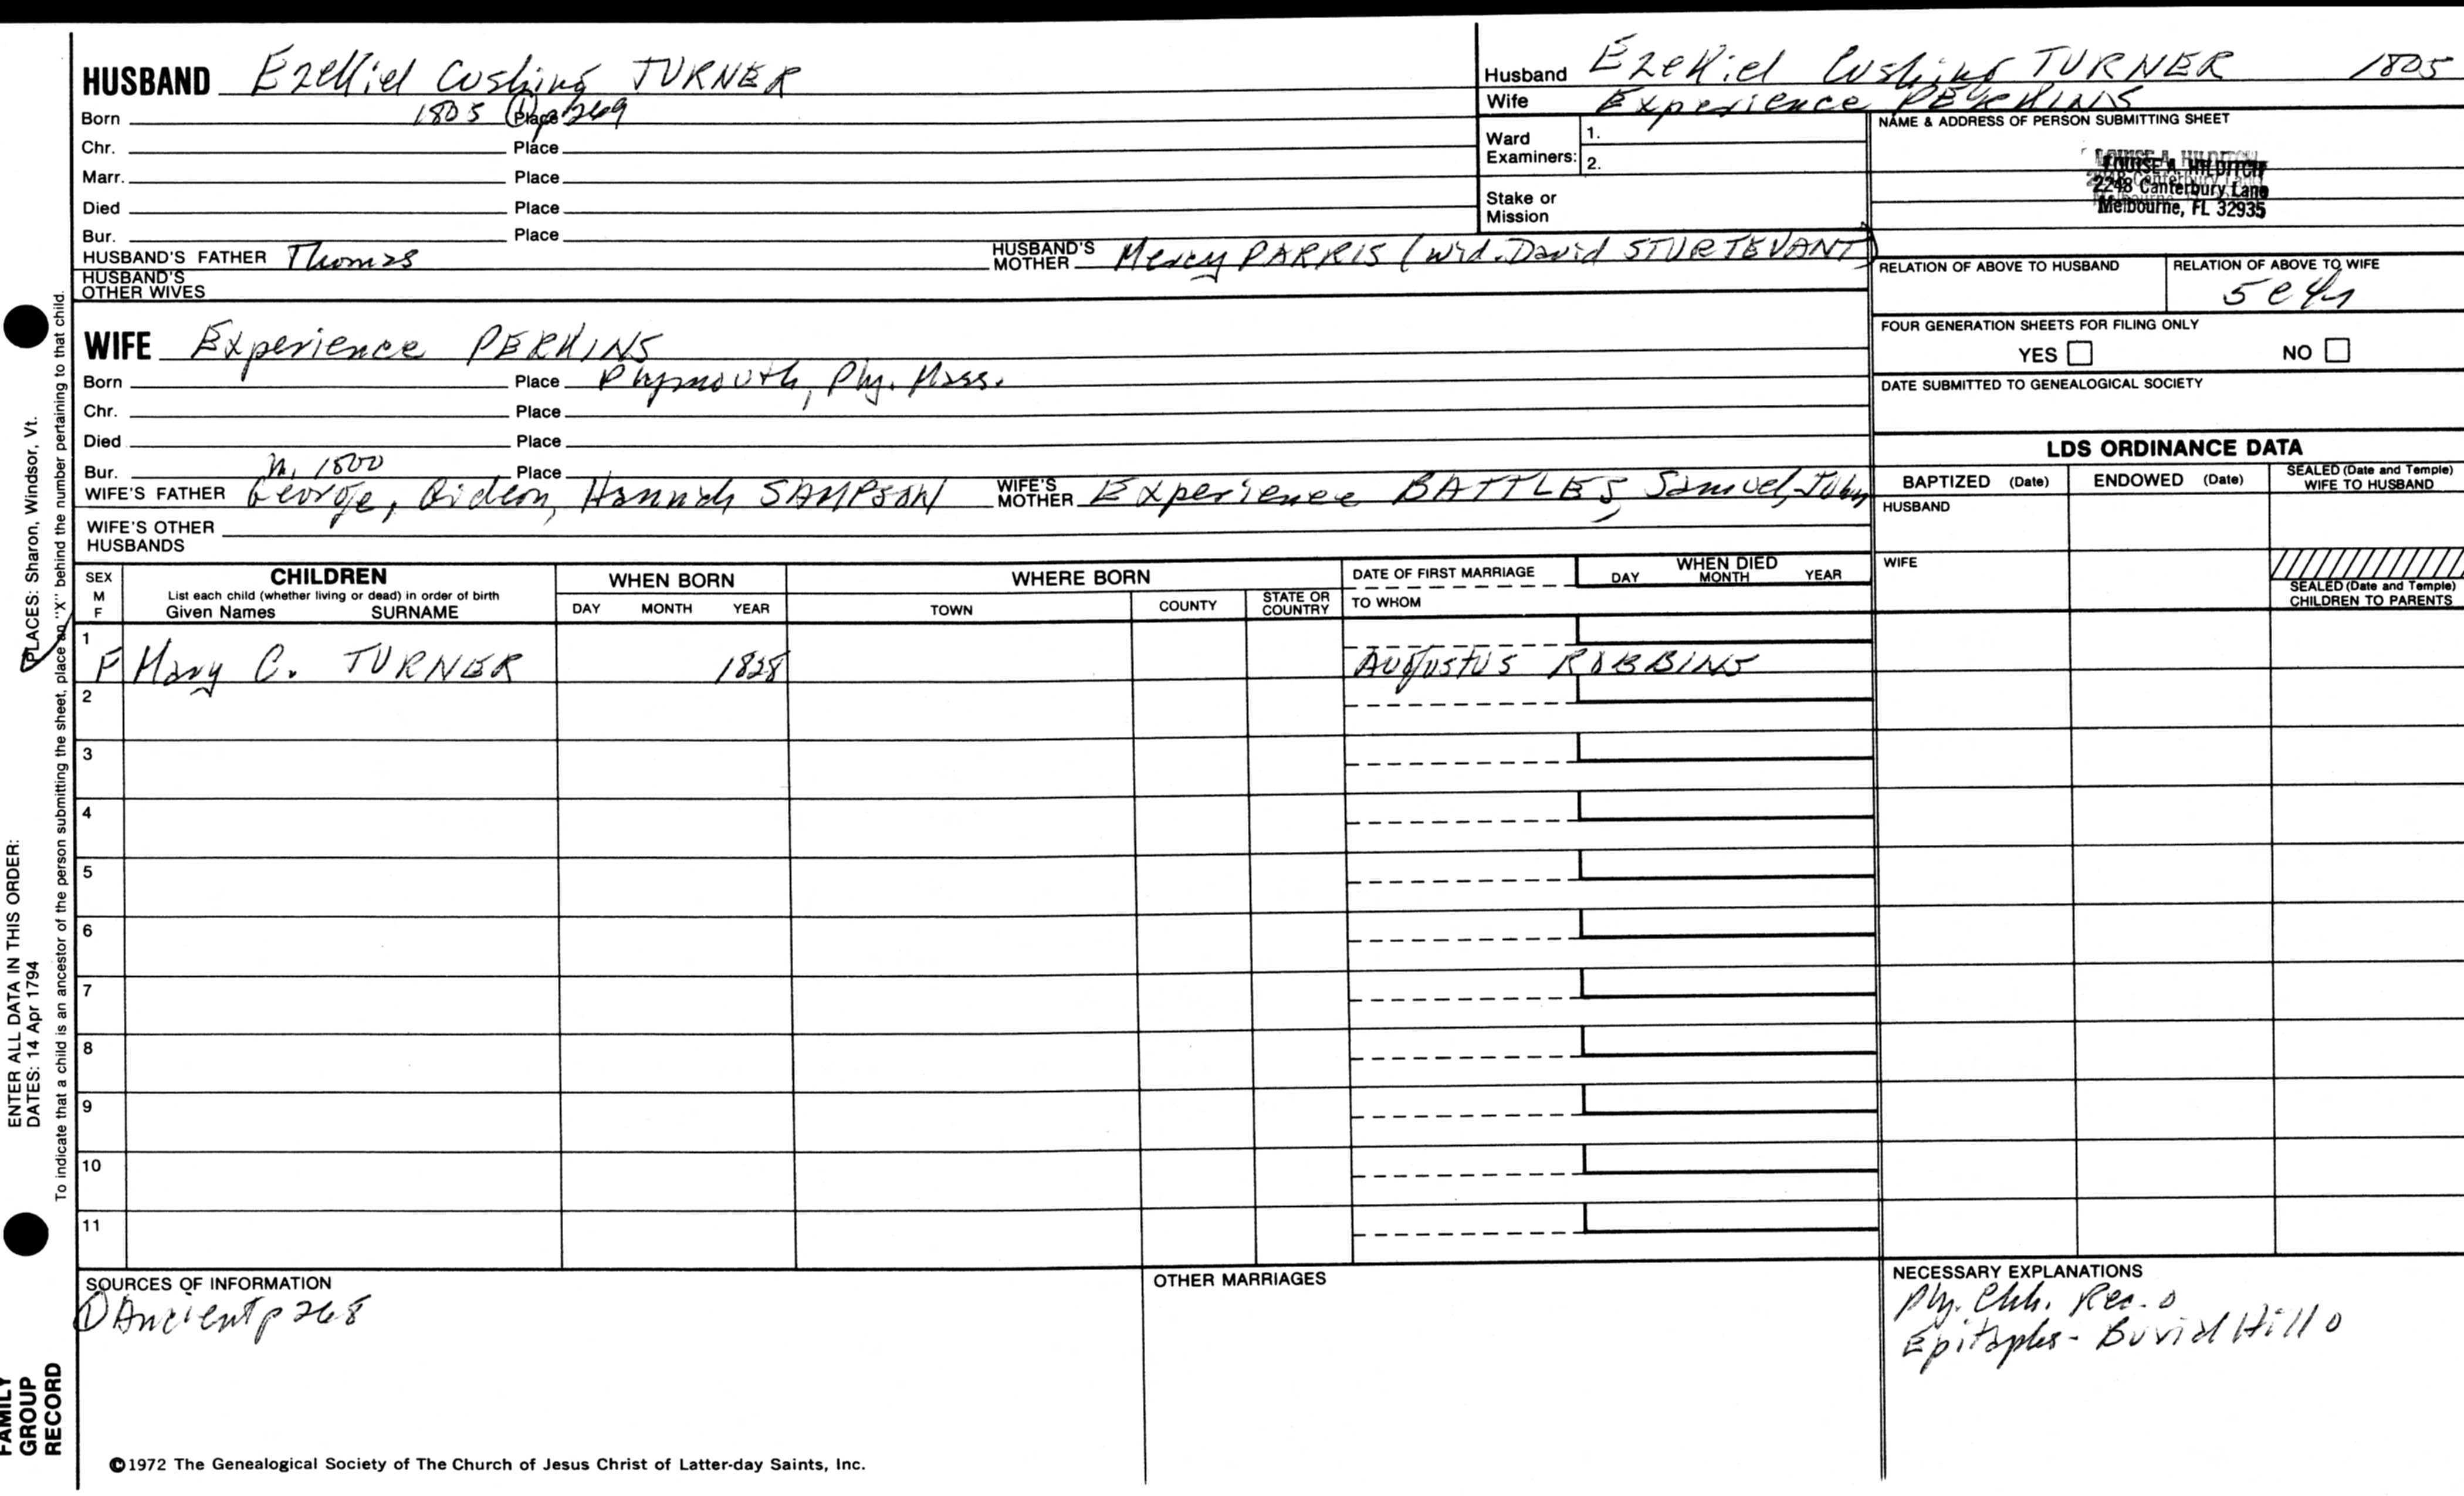 HUSBAND Ezekiel Cushing TURNER
Born 1805 (1) p 269 Place
Chr. Place
Marr. Place
Died Place
Bur. Place
HUSBAND'S FATHER Thomas HUSBAND'S MOTHER Mercy PARRIS (wid. David STURTEVANT)
HUSBAND'S OTHER WIVES
WIFE Experience PERKINS
Born Place Plymouth, Ply. Mass.
Chr. Place
Died Place
Bur. m. 1800 Place
WIFE'S FATHER George, Gideon, Hannah SAMPSON WIFE'S MOTHER Experience BATTLES, Samuel, John
WIFE'S OTHER HUSBANDS
Husband Ezekiel Cushing TURNER 1805
Wife Experience PERKINS
Ward Examiners: 1.
2.
Stake or Mission
NAME & ADDRESS OF PERSON SUBMITTING SHEET
LOUISE A. HILDITCH
2248 Canterbury Lane
Melbourne, FL 32935
RELATION OF ABOVE TO HUSBAND
RELATION OF ABOVE TO WIFE
FOUR GENERATION SHEETS FOR FILING ONLY
YES NO
DATE SUBMITTED TO GENEALOGICAL SOCIETY
LDS ORDINANCE DATA
BAPTIZED (Date) ENDOWED (Date) SEALED (Date and Temple) WIFE TO HUSBAND
HUSBAND
WIFE
SEALED (Date and Temple) CHILDREN TO PARENTS
SEX M F
CHILDREN
List each child (whether living or dead) in order of birth
Given Names SURNAME
WHEN BORN
DAY MONTH YEAR
WHERE BORN
TOWN COUNTY STATE OR COUNTRY
DATE OF FIRST MARRIAGE
TO WHOM
WHEN DIED
DAY MONTH YEAR
1
F Mary C. TURNER 1828 Augustus ROBBINS
2
3
4
5
6
7
8
9
10
11
SOURCES OF INFORMATION
(1) Ancient p 268
OTHER MARRIAGES
NECESSARY EXPLANATIONS
Ply. Chh. Rec. o
Epitaphs - Burial Hill o
©1972 The Genealogical Society of The Church of Jesus Christ of Latter-day Saints, Inc.
ENTER ALL DATA IN THIS ORDER:
DATES: 14 Apr 1794 PLACES: Sharon, Windsor, Vt.
To indicate that a child is an ancestor of the person submitting the sheet, place an "X" behind the number pertaining to that child.
FAMILY
GROUP
RECORD